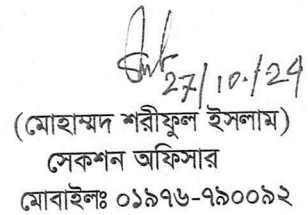 27/10/24
(মোহাম্মদ শরীফুল ইসলাম)
সেকশন অফিসার
মোবাইলঃ ০১৯৭৬-৭৯০০৯২